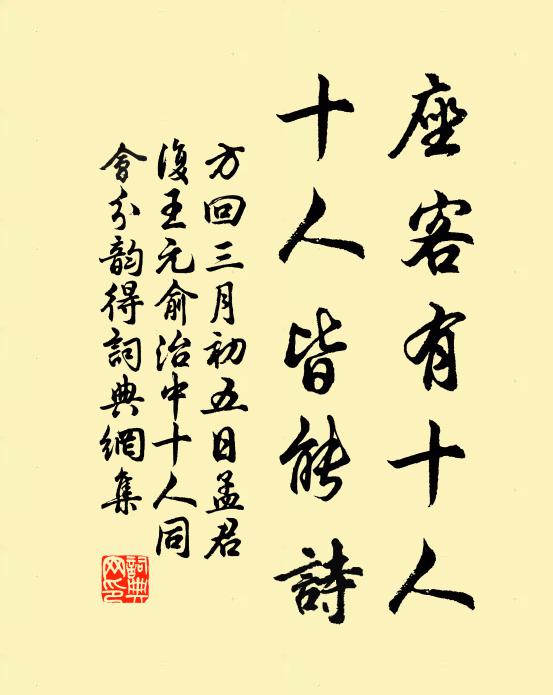 座客有十人
十人皆能詩
方回三月初五日孟君
復王元俞治中十人同
會分韵得詞典網集
詞典
网印